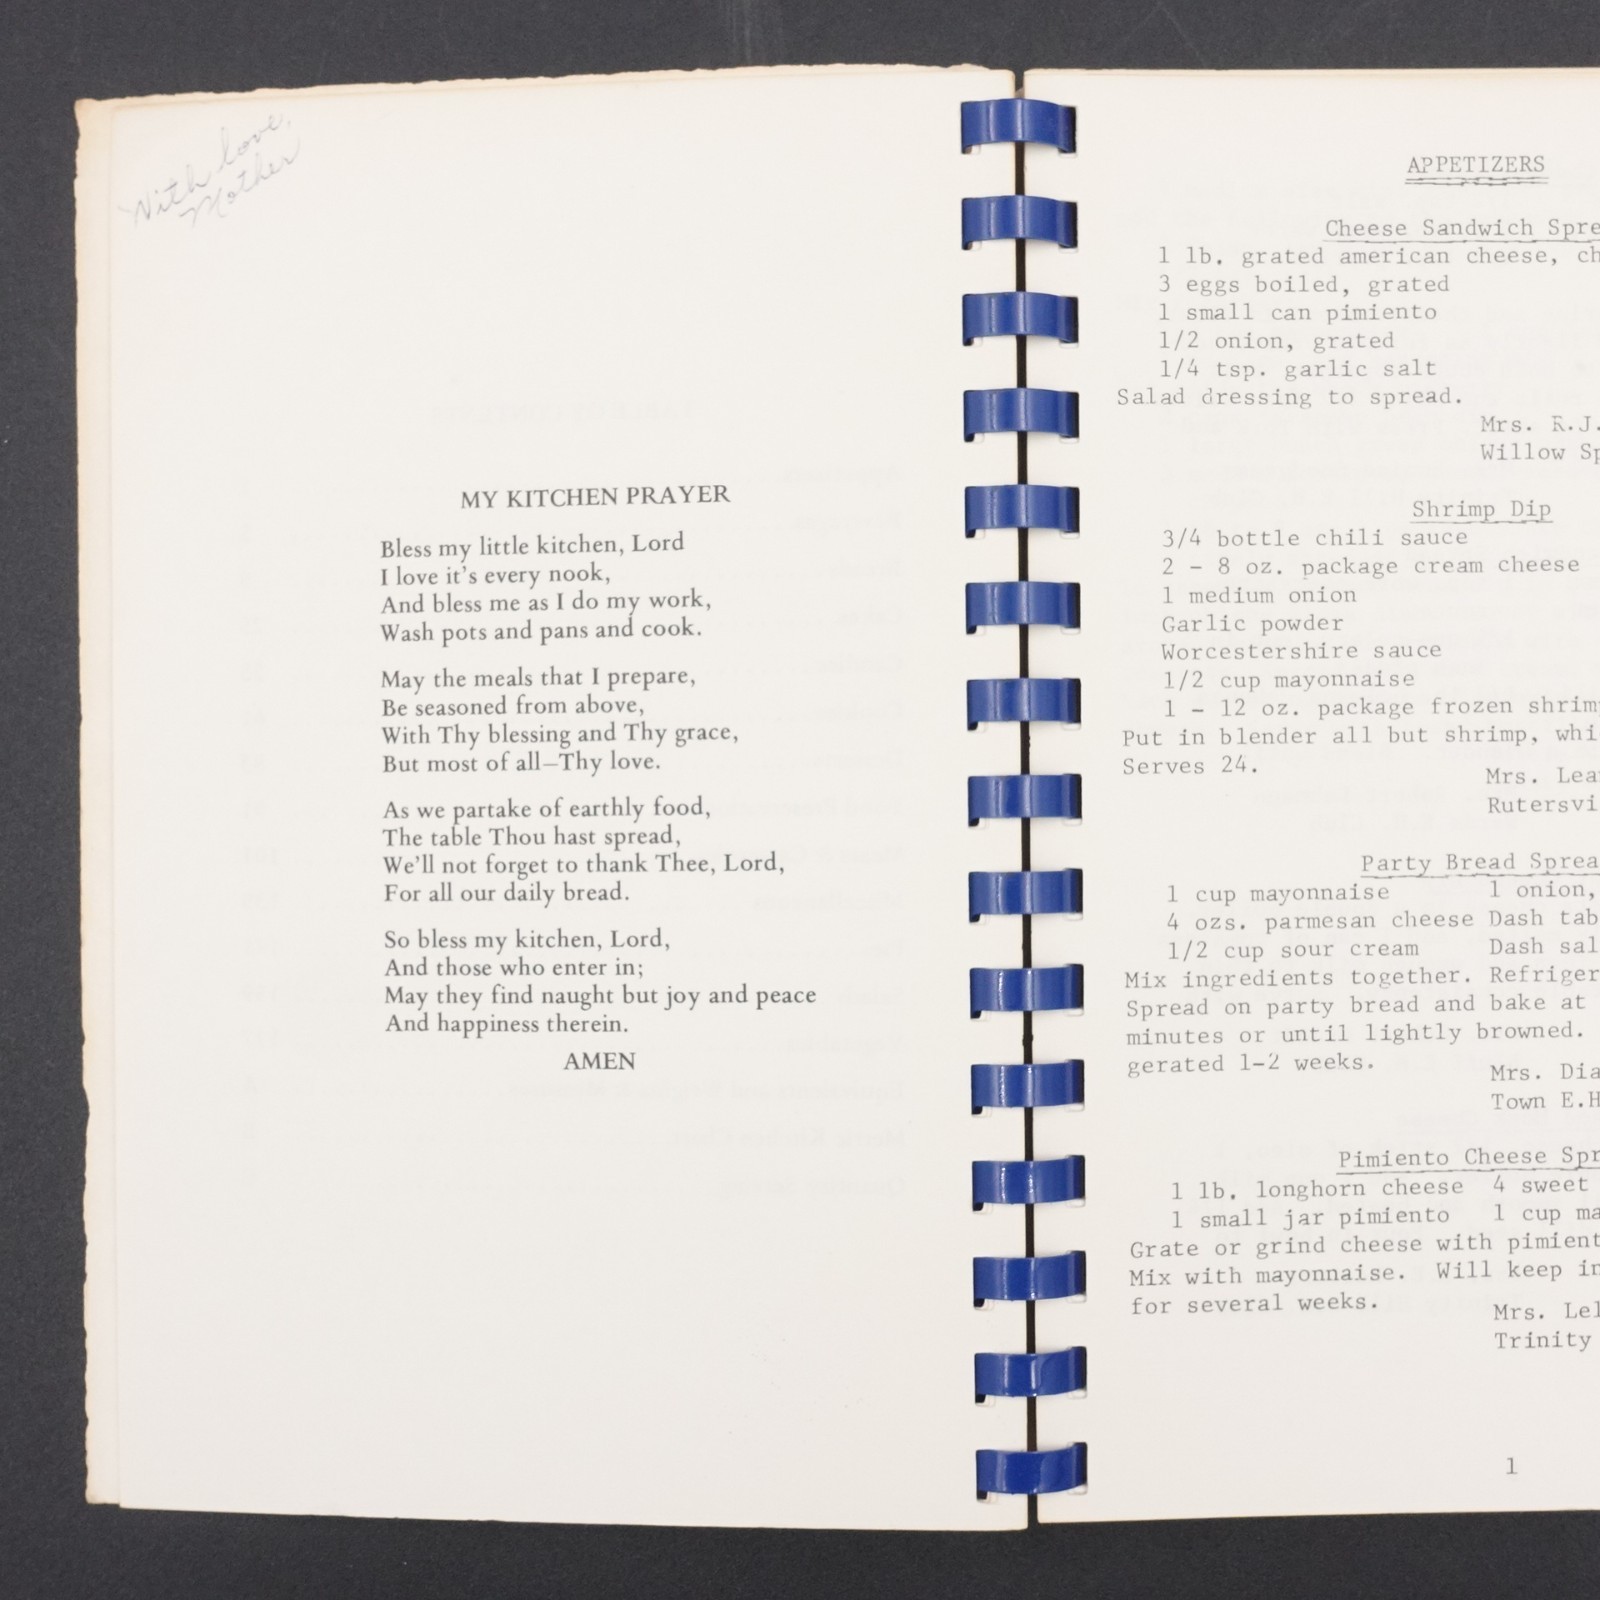 With love,
Mother
MY KITCHEN PRAYER
Bless my little kitchen, Lord
I love it's every nook,
And bless me as I do my work,
Wash pots and pans and cook.
May the meals that I prepare,
Be seasoned from above,
With Thy blessing and Thy grace,
But most of all—Thy love.
As we partake of earthly food,
The table Thou hast spread,
We'll not forget to thank Thee, Lord,
For all our daily bread.
So bless my kitchen, Lord,
And those who enter in;
May they find naught but joy and peace
And happiness therein.
AMEN
APPETIZERS
Cheese Sandwich Spre
1 lb. grated american cheese, ch
3 eggs boiled, grated
1 small can pimiento
1/2 onion, grated
1/4 tsp. garlic salt
Salad dressing to spread.
Mrs. R.J.
Willow Sp
Shrimp Dip
3/4 bottle chili sauce
2 - 8 oz. package cream cheese
1 medium onion
Garlic powder
Worcestershire sauce
1/2 cup mayonnaise
1 - 12 oz. package frozen shrimp
Put in blender all but shrimp, whi
Serves 24.
Mrs. Lea
Rutersvi
Party Bread Sprea
1 cup mayonnaise 1 onion,
4 ozs. parmesan cheese Dash tab
1/2 cup sour cream Dash sal
Mix ingredients together. Refriger
Spread on party bread and bake at
minutes or until lightly browned.
gerated 1-2 weeks.
Mrs. Dia
Town E.H
Pimiento Cheese Spr
1 lb. longhorn cheese 4 sweet
1 small jar pimiento 1 cup ma
Grate or grind cheese with pimient
Mix with mayonnaise. Will keep in
for several weeks.
Mrs. Lel
Trinity
1